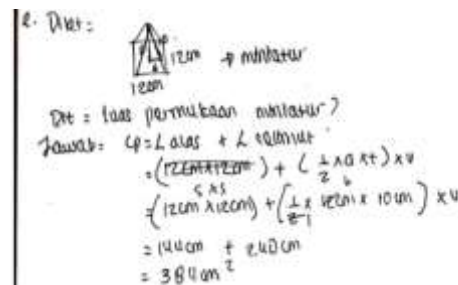 2. Diket:
12cm → miniatur
12cm
Dit = luas permukaan miniatur?
Jawab = LP = L alas + L selimut
= (12cm x 12cm) + (1/2 x a x t) x 4
s x s
= (12cm x 12cm) + (1/2 x 12cm x 10cm) x 4
6
1
= 144cm + 240cm
= 384cm²